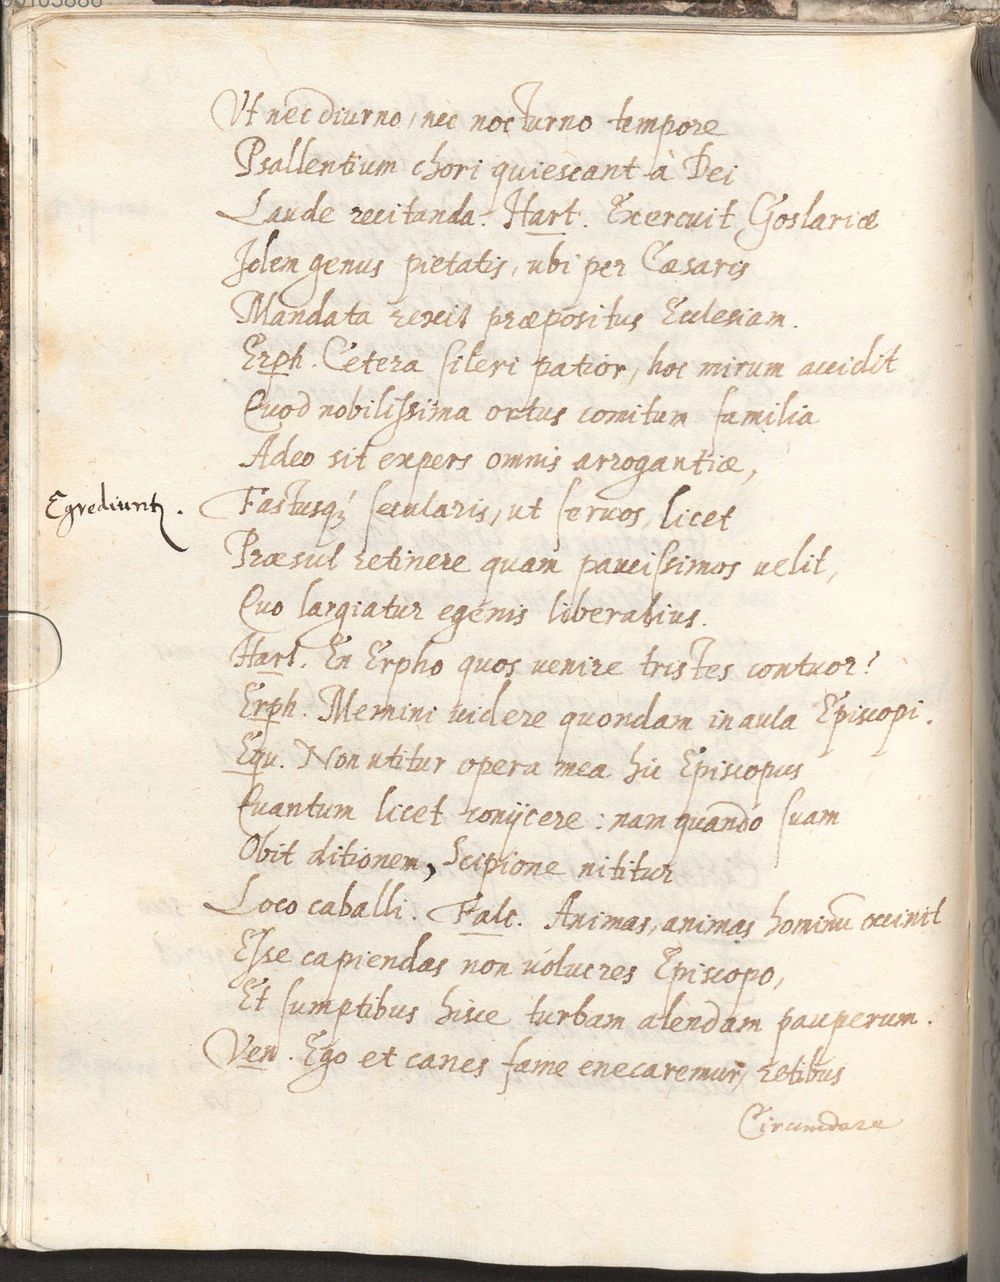 Vt nec diurno, nec nocturno tempore
Psallentium chori quiescant à Dei
Laude recitanda. Hart. Exercuit Goslariæ
Idem genus pietatis, ubi per Cæsaris
Mandata rexit præpositus Ecclesiam.
Erph. Cetera sileri patior, hoc mirum accidit
Quod nobilissima ortus comitum familia
Adeo sit expers omnis arrogantiæ,
Egrediunt[ur].
Fastusq[ue] secularis, ut seruos, licet
Præsul retinere quam paucissimos uelit,
Quo largiatur egenis liberalius.
Hart. En Erpho quos uenire tristes contuor?
Erph. Memini uidere quondam in aula Episcopi.
Equ. Non utitur opera mea hic Episcopus
Quantum licet conijcere: nam quando suam
Obit ditionem, Scipione nititur
Loco caballi. Falc. Animas, animas hominū occinit
Esse capiendas non uolucres Episcopo,
Et sumptibus hisce turbam alendam pauperum.
Ven. Ego et canes fame enecaremur, retibus
Circumdare